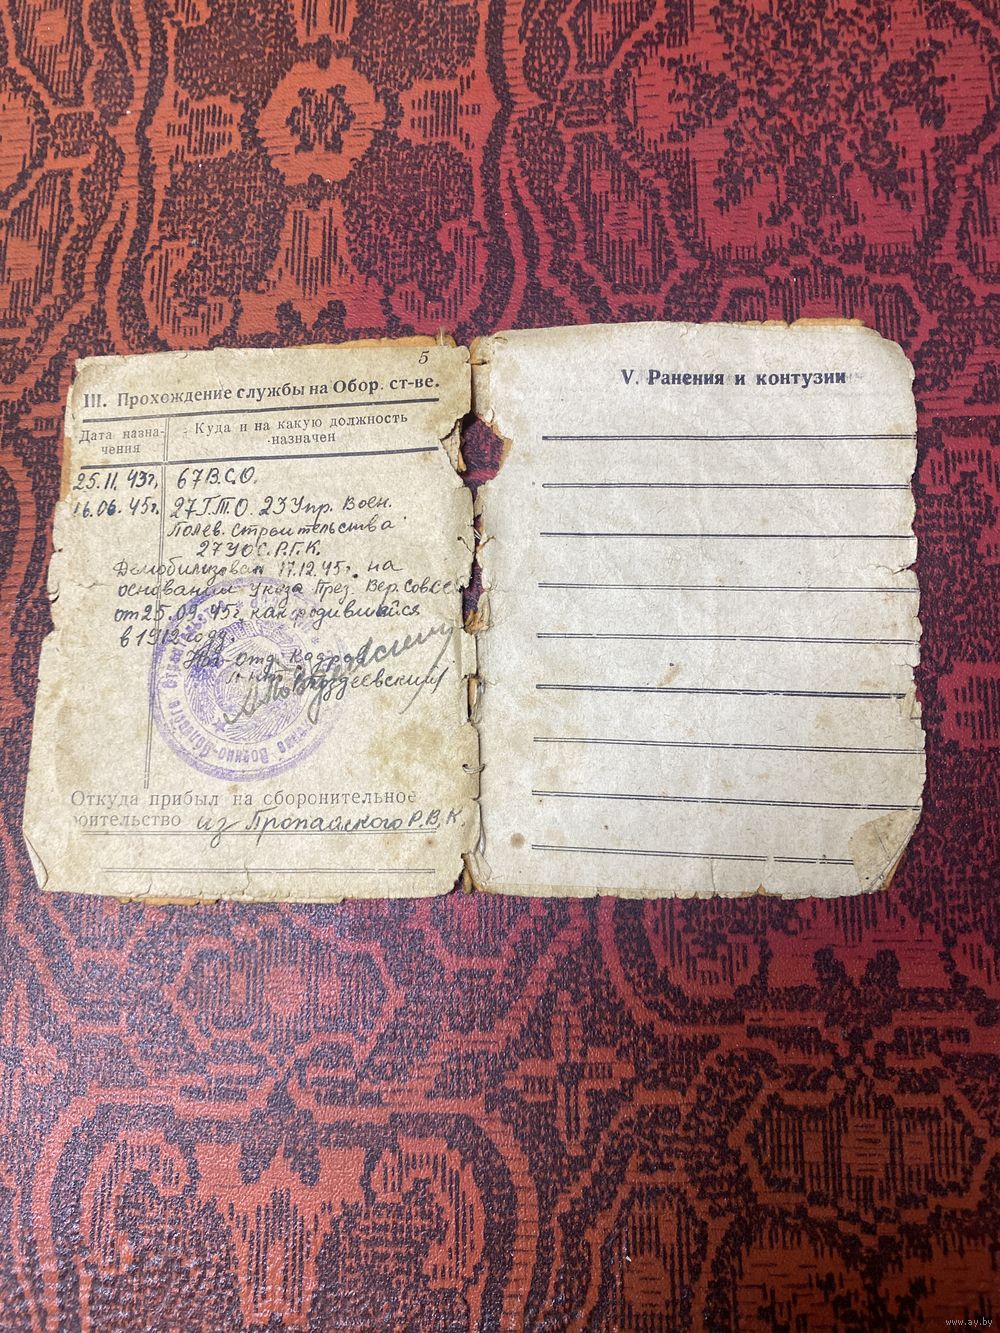 5
III. Прохождение службы на Обор. ст-ве.
Дата назна-
чения
Куда и на какую должность
назначен
25.11.43г. 67 В.С.О.
16.06.45г. 27 Г.Т.О. 23 Упр. Воен.
Полев. Строительства
27 УОС. Р.Г.К.
Демобилизован 17.12.45г. на
основании Указа През. Вер. Совсе
от 25.09.45г. как родившийся
в 1912 году.
Нач. Отд. Кадров
Откуда прибыл на оборонительное
роительство из Пропойского Р.В.К.
V. Ранения и контузии
www.ay.by